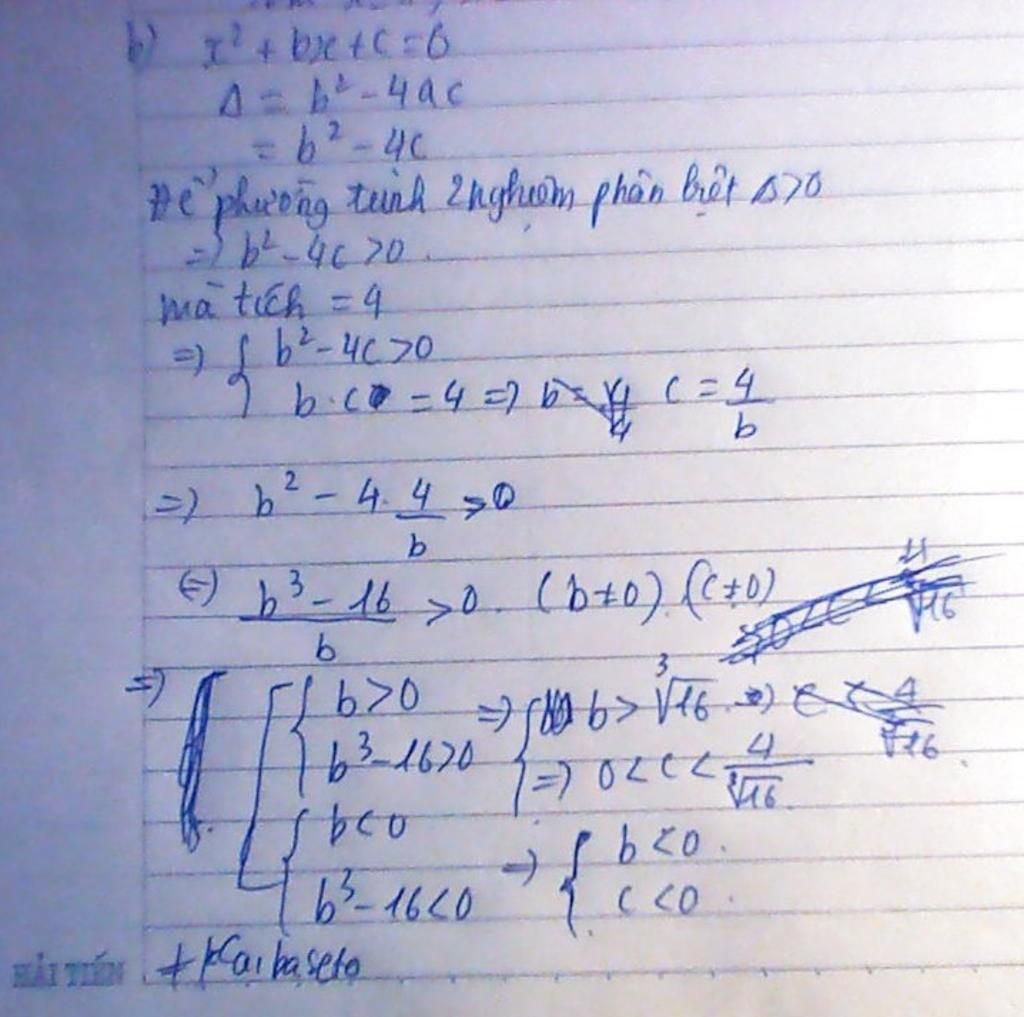 b) x² + bx + c = 0
Δ = b² - 4ac
= b² - 4c
Để phương trình 2 nghiệm phân biệt Δ > 0
=> b² - 4c > 0.
mà tích = 4
=> { b² - 4c > 0
b . c = 4 => c = 4/b
=> b² - 4 . 4/b > 0
(=) (b³ - 16)/b > 0. (b ≠ 0) (c ≠ 0)
=> [ { b > 0 => { b > ∛16
b³ - 16 > 0 => 0 < c < 4/∛16
{ b < 0 => { b < 0.
b³ - 16 < 0 c < 0.
+ Kaibaseto
HẢI TIẾN